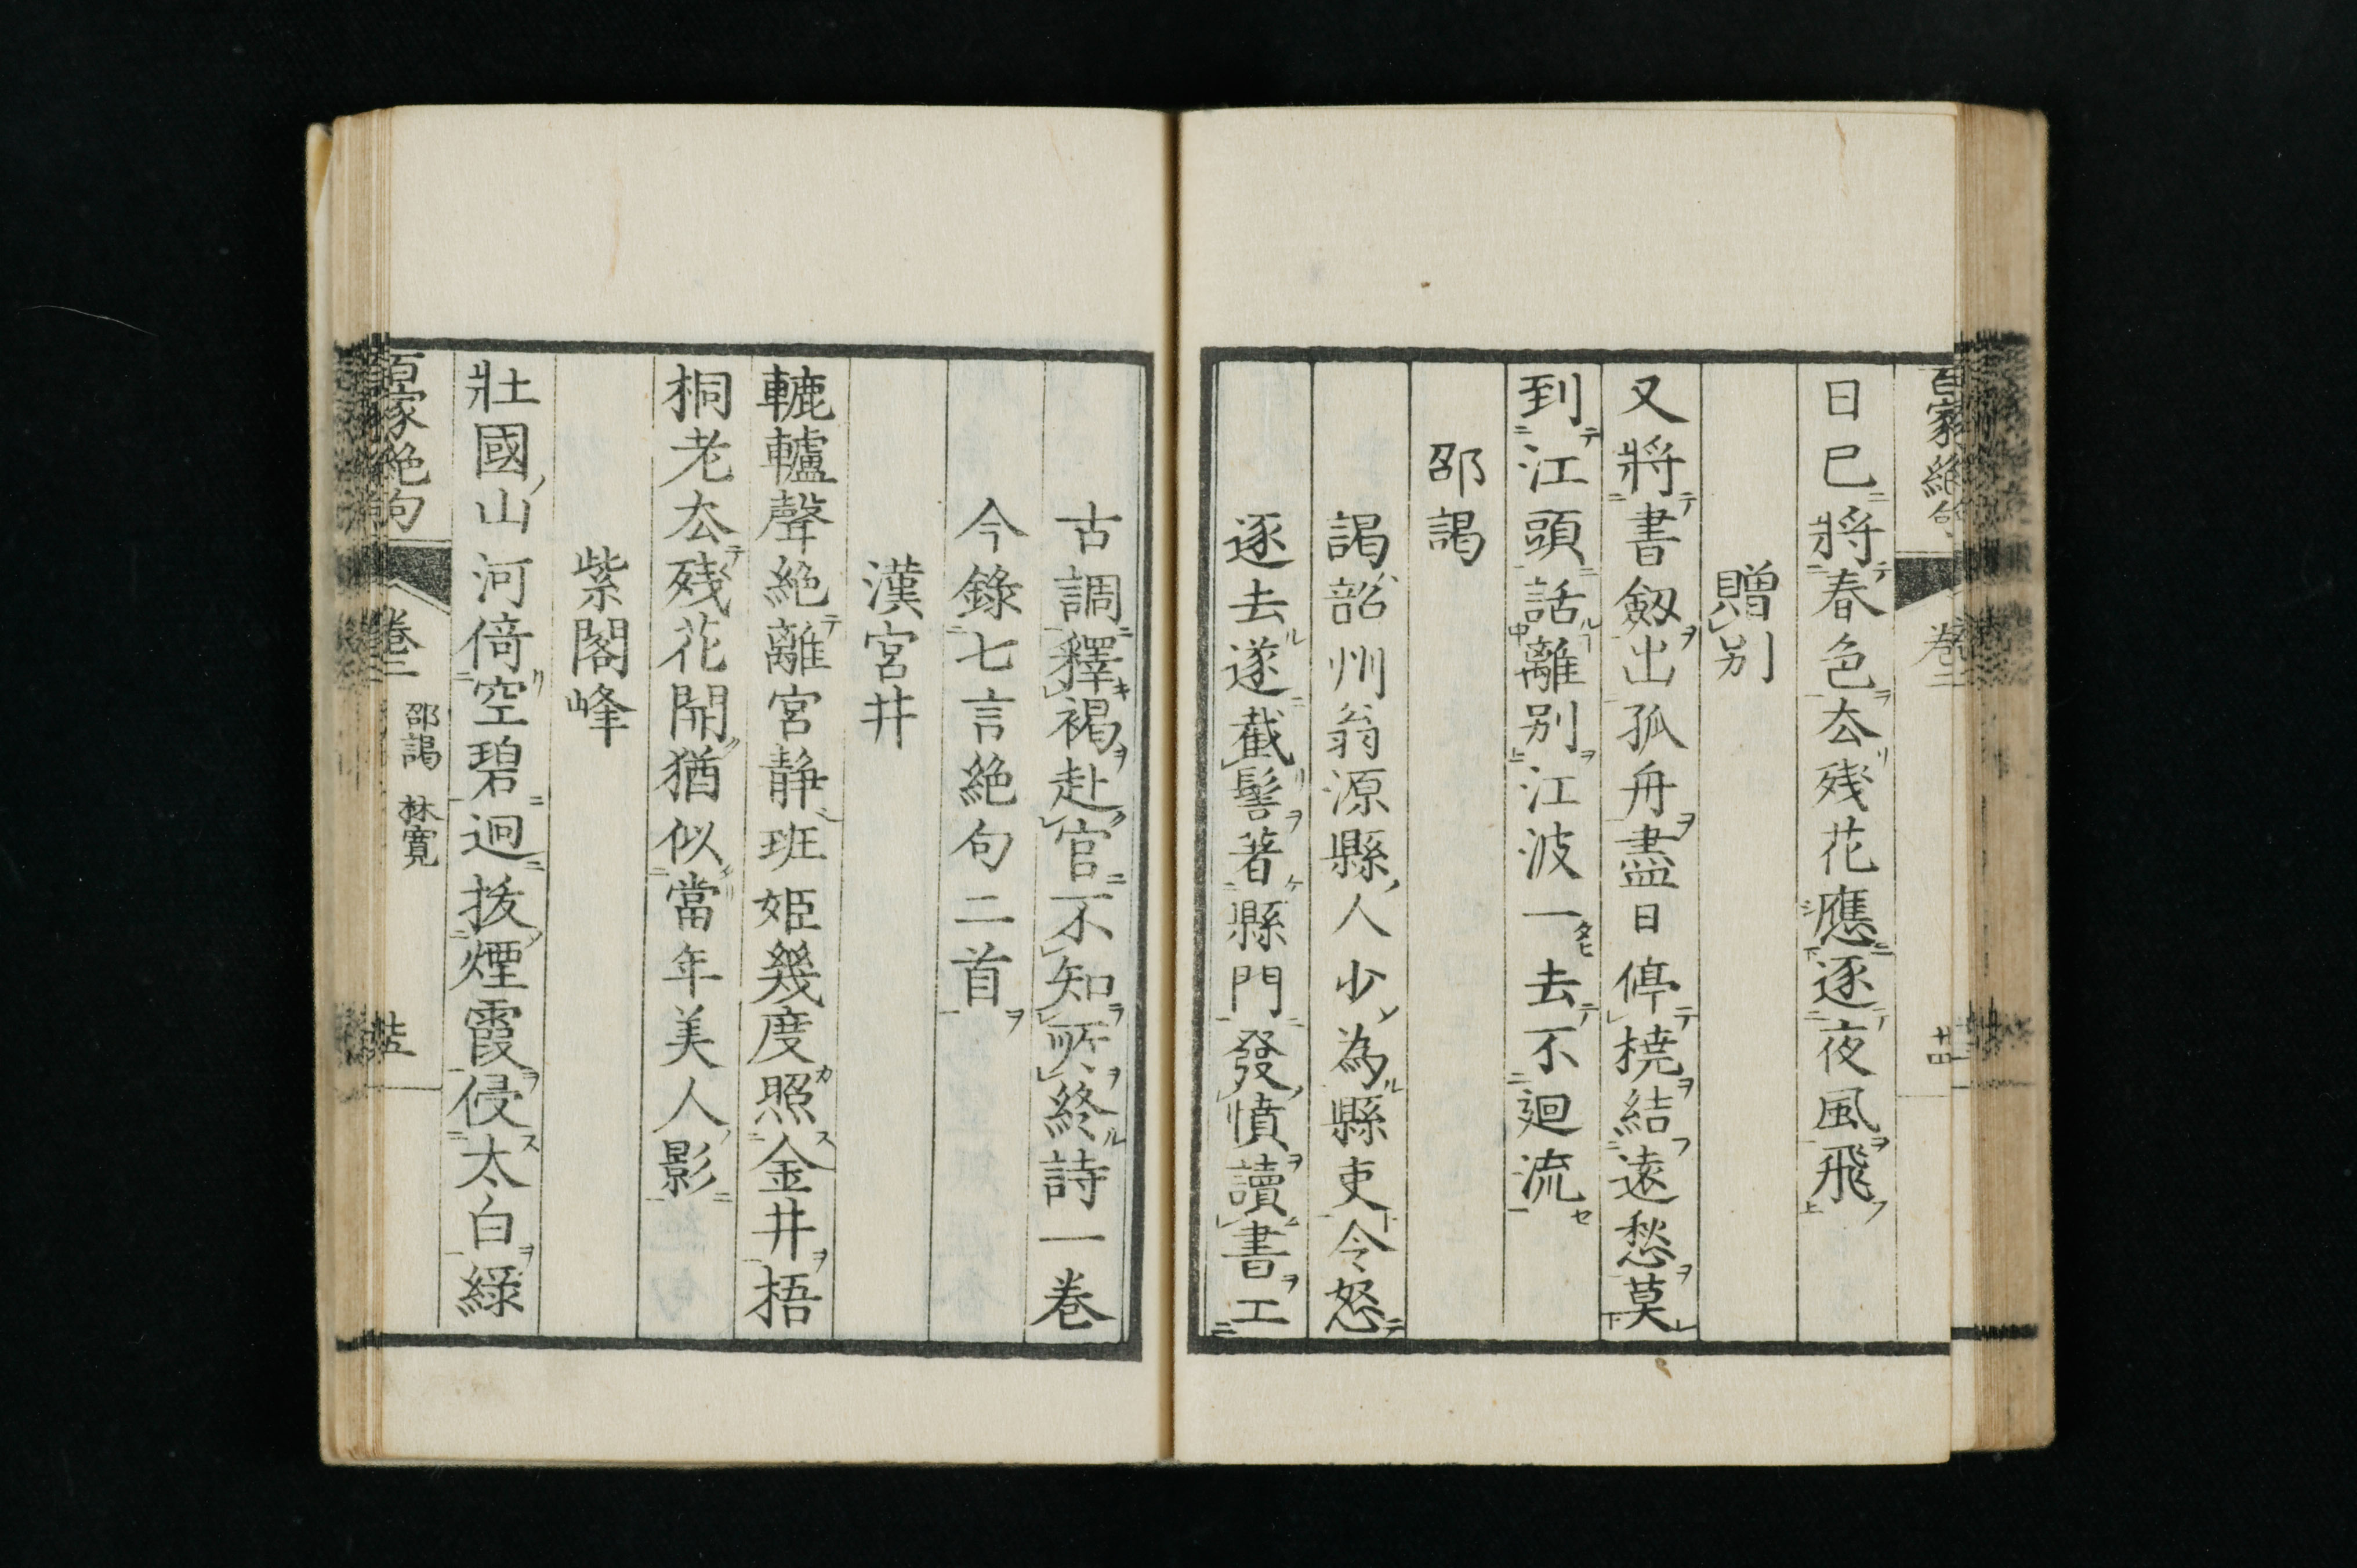 百家絶句
卷二
廿四
日已將春色厺殘花應逐夜風飛
贈別
又將書劔出孤舟盡日停橈結遠愁莫
到江頭話離別江波一去不迴流
邵謁
謁韶州翁源縣人少為縣吏令怒
逐去遂截髻著縣門發憤讀書工
古調釋褐赴官不知所終詩一卷
今錄七言絶句二首
漢宮井
轆轤聲絶離宮静班姬幾度照金井梧
桐老厺殘花開猶似當年美人影
紫閣峰
壯國山河倚空碧迥拔煙霞侵太白綠
百家絶句
卷二
邵謁
林寬
廿五